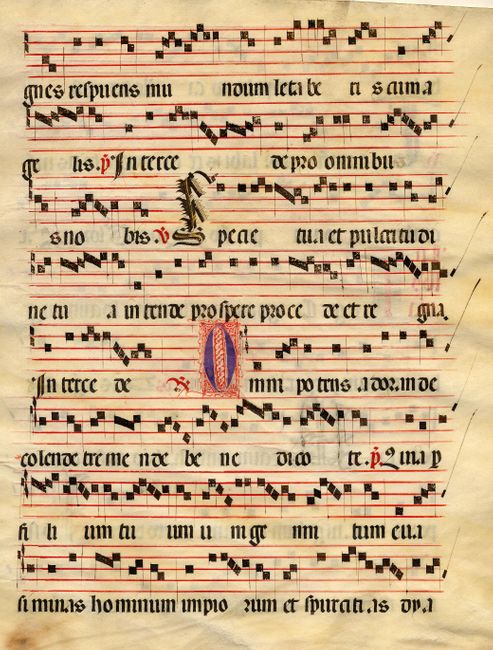 gnes respuens mu ndum leta be ri s cum a
ge lis. p̃ In terce de pro omnibu
s no bis. v Spe cie tu a et pulcri tu di
ne tu a in tende prospere proce de et re gna
In terce de R Omni po tens adoran de
colende tre me nde be ne dico te. p̃ Quia p
fi li um tu um u ni ge ni tum eua
si minas hominum impio rum et spurciti as dya